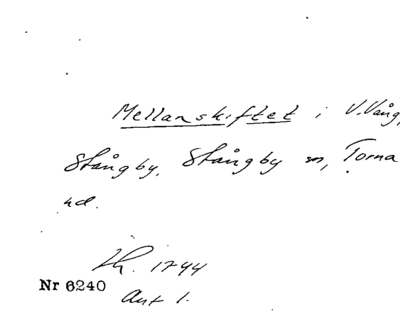 Mellanskiftet i V. Vång,
Stångby, Stångby sn, Torna
hd.
Lh. 1744
Nr 6240
Akt 1.